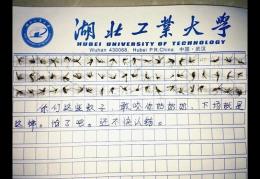 湖北工業大學
HUBEI UNIVERSITY OF TECHNOLOGY
Wuhan 430068, Hubei P.R.China 中国·武汉
你们这些蚊子，敢咬你奶奶的，下场就是
这样。怕了吧。还不快认输。